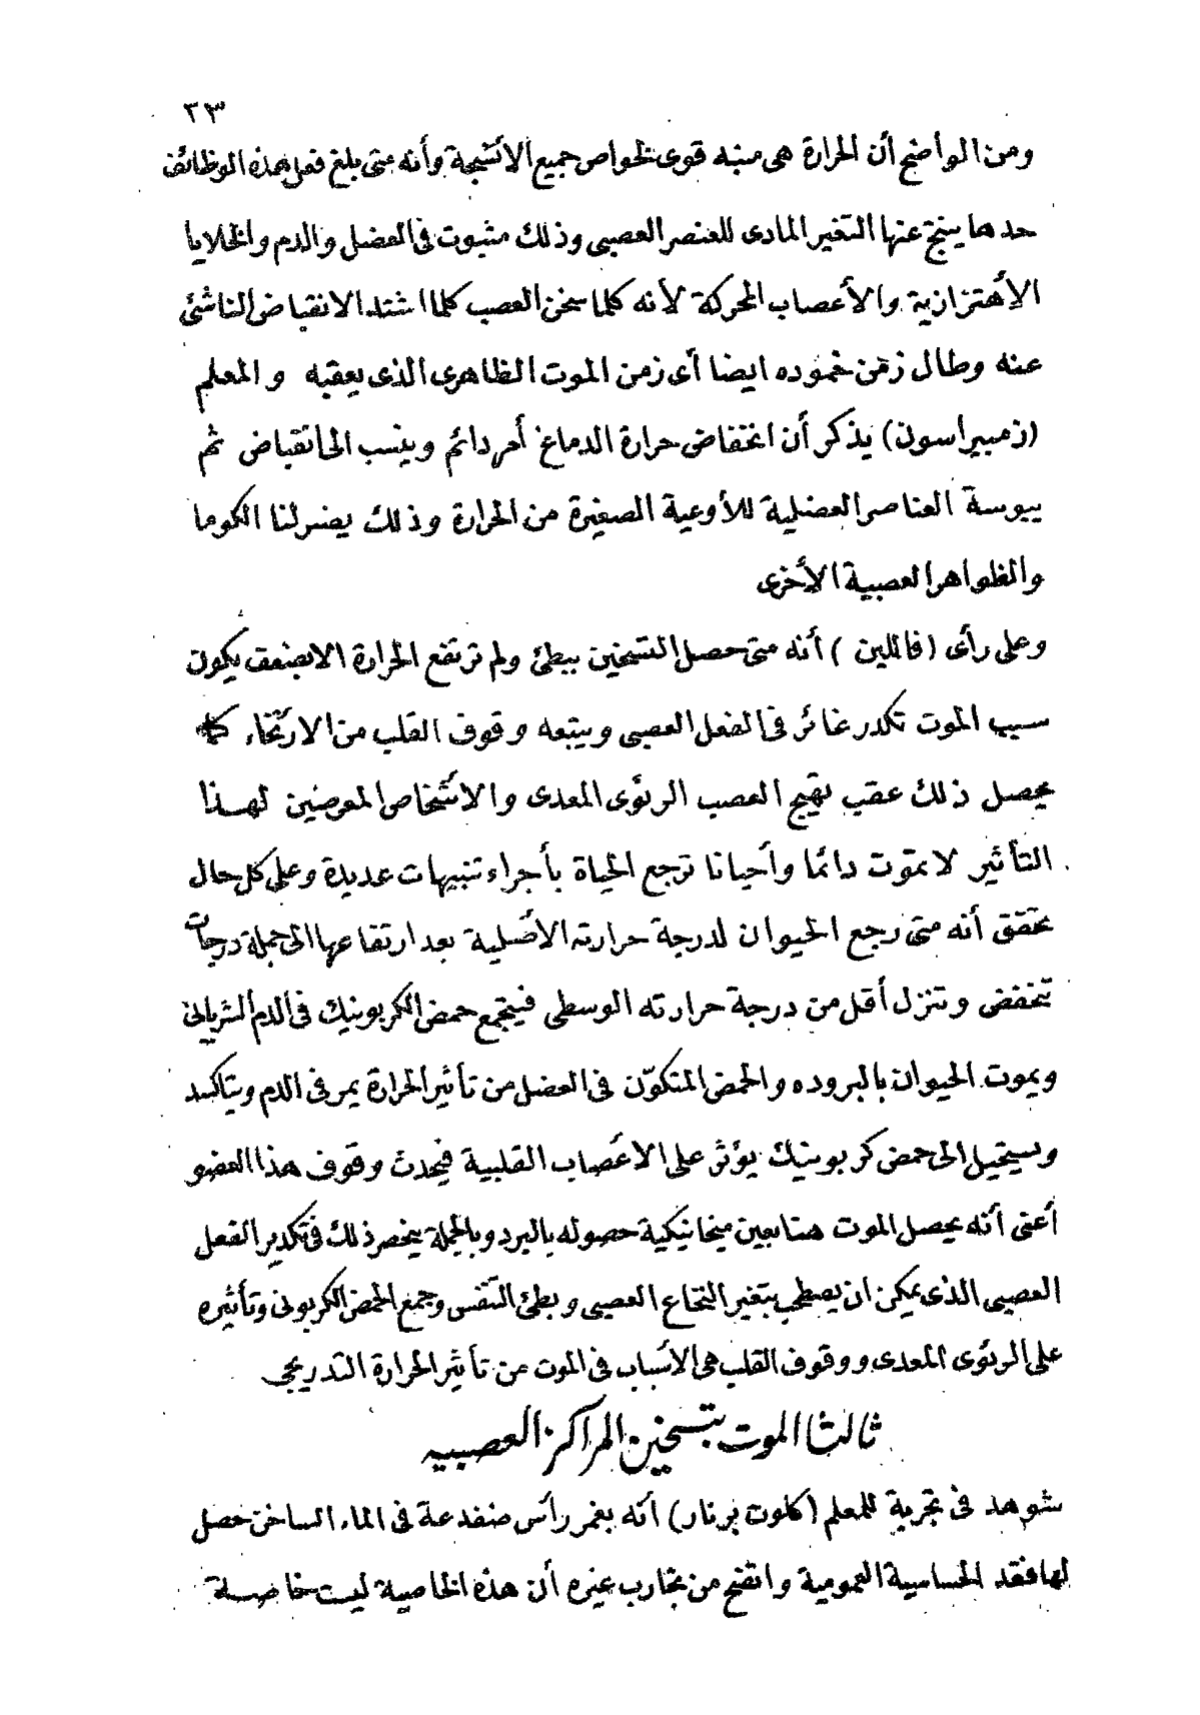 ٢٣
ومن الواضح أن الحرارة هى منبه قوى لخواص جميع الأنسجة وأنه متى بلغ فعل هذه الوظائف
حدها ينتج عنها التغير المادى للعنصر العصبى وذلك مثبوت فى العضل والدم والخلايا
الأهتزازية والأعصاب المحركة لأنه كلما سخن العصب كلما اشتد الانقباض الناشئ
عنه وطال زمن خموده ايضا أى زمن الموت الظاهرى الذى يعقبه والمعلم
(زمبيراسون) يذكر أن انخفاض حرارة الدماغ أمر دائم وينسب الى انقباض ثم
يبوسة العناصر العضلية للأوعية الصغيرة من الحرارة وذلك يفسر لنا الكوما
والظواهر العصبية الأخرى
وعلى رأى (فاللين) أنه متى حصل التسخين ببطئ ولم ترتفع الحرارة الا بضعف يكون
سبب الموت تكدر غائر فى الفعل العصبى ويتبعه وقوف القلب من الارتخاء كما
يحصل ذلك عقب تهيج العصب الرئوى المعدى والأشخاص المعرضين لهذا
التأثير لا تموت دائما وأحيانا ترجع الحياة بأجراء تنبيهات عديدة وعلى كل حال
تحقق أنه متى رجع الحيوان لدرجة حرارته الأصلية بعد ارتفاعها الى جملة درجات
تنخفض وتنزل أقل من درجة حرارته الوسطى فيتجمع حمض الكربونيك فى الدم الشريانى
ويموت الحيوان بالبروده والحمض المتكوّن فى العضل من تأثير الحرارة يمر فى الدم ويتاكسد
ويستحيل الى حمض كربونيك يؤثر على الأعصاب القلبية فيحدث وقوف هذا العضو
أعنى أنه يحصل الموت هنا بعين ميخانيكية حصوله بالبرد وبالجملة ينحصر ذلك فى تكدير الفعل
العصبى الذى يمكن ان يصطحب بتغير النخاع العصبى وبطئ التنفس وجمع الحمض الكربونى وتأثيره
على الرئوى المعدى ووقوف القلب هى الأسباب فى الموت من تأثير الحرارة التدريجى
ثالثا الموت بتسخين المراكز العصبيه
شوهد فى تجربة للمعلم (كلوت برنار) أنه بغمر رأس ضفدعة فى الماء الساخن حصل
لها فقد الحساسية العمومية واتضح من تجارب غيره أن هذه الخاصية ليست خاصة